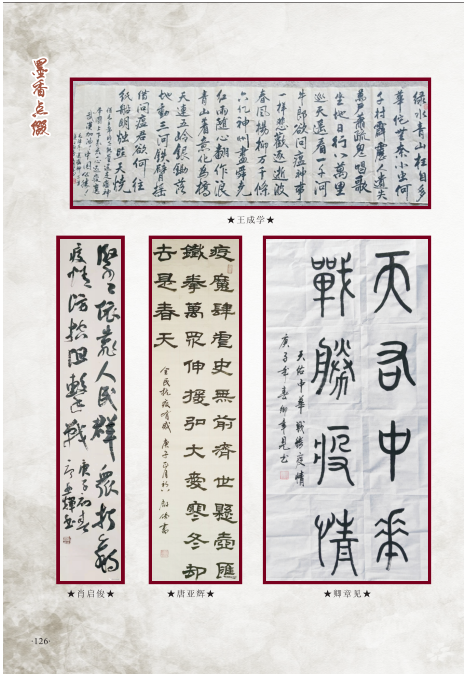 墨香点缀
绿水青山枉自多
华佗无奈小虫何
千村薜荔人遗失
万户萧疏鬼唱歌
坐地日行八万里
巡天遥看一千河
牛郎欲问瘟神事
一样悲欢逐逝波
春风杨柳万千条
六亿神州尽舜尧
红雨随心翻作浪
青山着意化为桥
天连五岭银锄落
地动三河铁臂摇
借问瘟君欲何往
纸船明烛照天烧
★王成学★
紧紧依靠人民群众打赢
疫情防控阻击战
庚子初春
★肖启俊★
疫魔肆虐史无前济世悬壶汇
铁拳万众伸援引大爱寒冬却
去是春天
全民抗疫有感
★唐亚辉★
天佑中华
战胜疫情
天佑中华战胜疫情
庚子年春卿章见书
★卿章见★
·126·